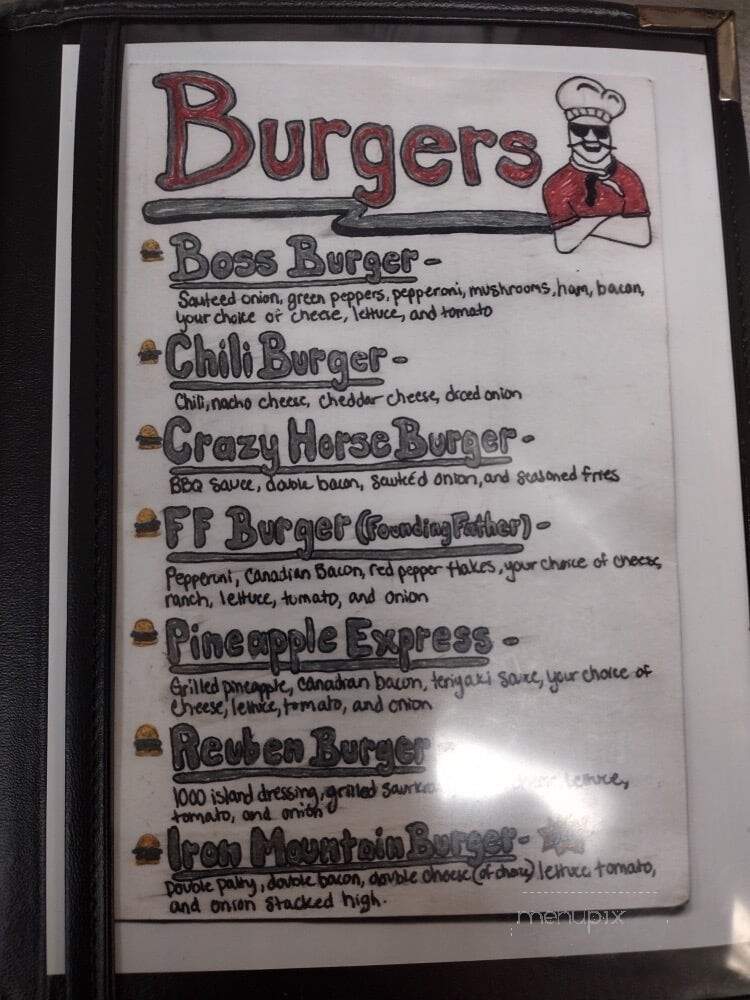 Burgers
Boss Burger -
Sauteed onion, green peppers, pepperoni, mushrooms, ham, bacon,
your choice of cheese, lettuce, and tomato
Chili Burger -
Chili, nacho cheese, cheddar cheese, diced onion
Crazy Horse Burger -
BBQ sauce, double bacon, sauteed onion, and seasoned fries
FF Burger (Founding Father) -
Pepperoni, Canadian Bacon, red pepper flakes, your choice of cheese,
ranch, lettuce, tomato, and onion
Pineapple Express -
Grilled pineapple, canadian bacon, teriyaki sauce, your choice of
cheese, lettuce, tomato, and onion
Reuben Burger
1000 island dressing, grilled lettuce,
tomato, and onion
Iron Mountain Burger -
Double patty, double bacon, double cheese (of choice) lettuce tomato,
and onion stacked high.
menupix